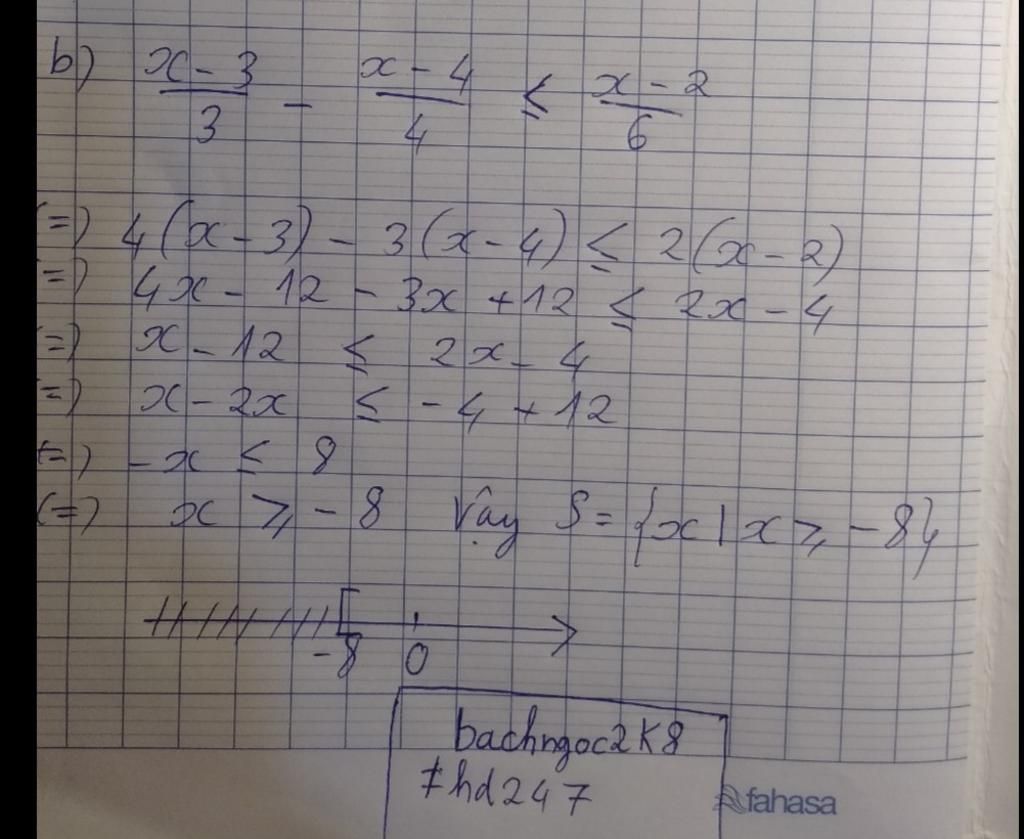 b) x - 3 / 3 - x - 4 / 4 ≤ x - 2 / 6
(=) 4(x - 3) - 3(x - 4) ≤ 2(x - 2)
(=) 4x - 12 - 3x + 12 ≤ 2x - 4
(=) x - 12 ≤ 2x - 4
(=) x - 2x ≤ -4 + 12
(=) -x ≤ 8
(=) x ≥ -8 Vậy S = {x | x ≥ -8}
-8 0
bachngoc2k8
#hd247
fahasa